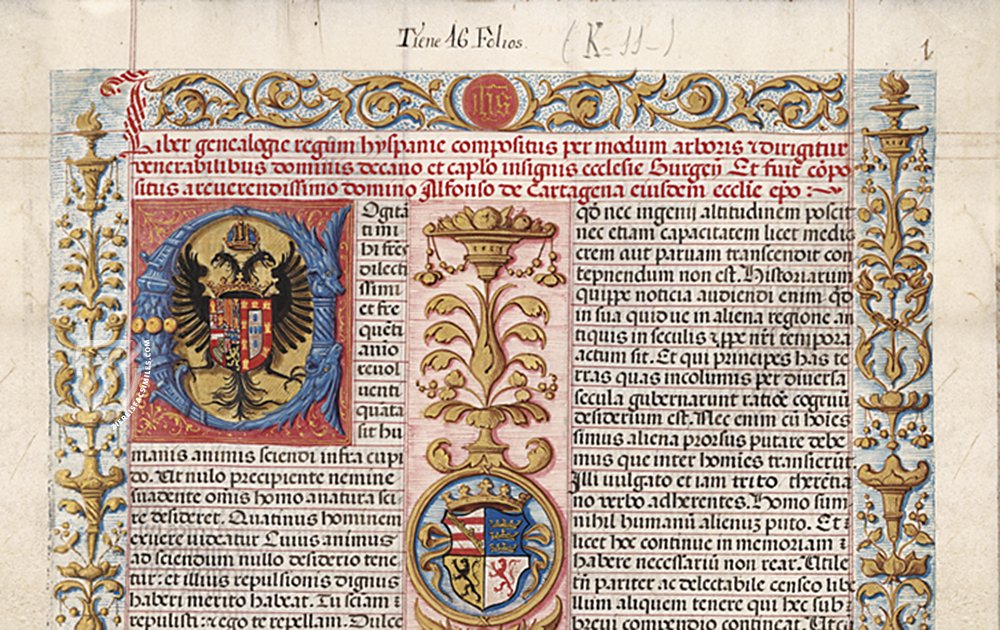 Tiene 16 Folios. (K-11-) 1
ihs
Liber genealogie regum hyspanie compositus per modum arboris ⁊ dirigitur
venerabilibus dominis decano et caplo insignis ecclesie Burgeñ Et fuit cōpo
situs a reverendissimo domino Alfonso de Cartagena eiusdem ecclie epo :~
Ogitā
ti mi
hi fres
dilecti
ssimi
et fre
quēti
anio
revol
venti
quata
sit hu
manis animis sciendi infra cupi
do. Ut nulo precipiente nemine
suadente omis homo a natura sci
re desideret. Quatinus hominem
exuere videatur Cuius animus
ad sciendum nullo desiderio tene
tur: et illius repulsionis dignus
haberi merito habeat. Tu sciam :
repulisti: ⁊ ego te repellam. Dulce
qō nec ingenij altitudinem poscit
nec etiam capacitatem licet medio
crem aut parvam transcendit con
tepnendum non est. Historiarum
quippe noticia audiendi enim qd
in sua quid ve in aliena regione an
tiquis in seculis ⁊ ppe nri tempora
actum sit. Et qui principes has te
rras quas incolumis per diversa
secula gubernarunt ratiōe cognū
desiderium est. Nec enim cū hoies
simus aliena prorsus putare debe
mus que inter homies transierūt
Illi vulgato et iam trito therētia
no verbo adherentes. Homo sum
nihil humanū alienuz puto. Et :
licet hoc continue in memoriam :
habere necessariū non rear. Utile
tñ pariter ac delectabile censeo libe
llum aliquem tenere qui hec sub :
brevi compendio contineat. Ut cū
WWW.CEISEFACSIMILES.COM